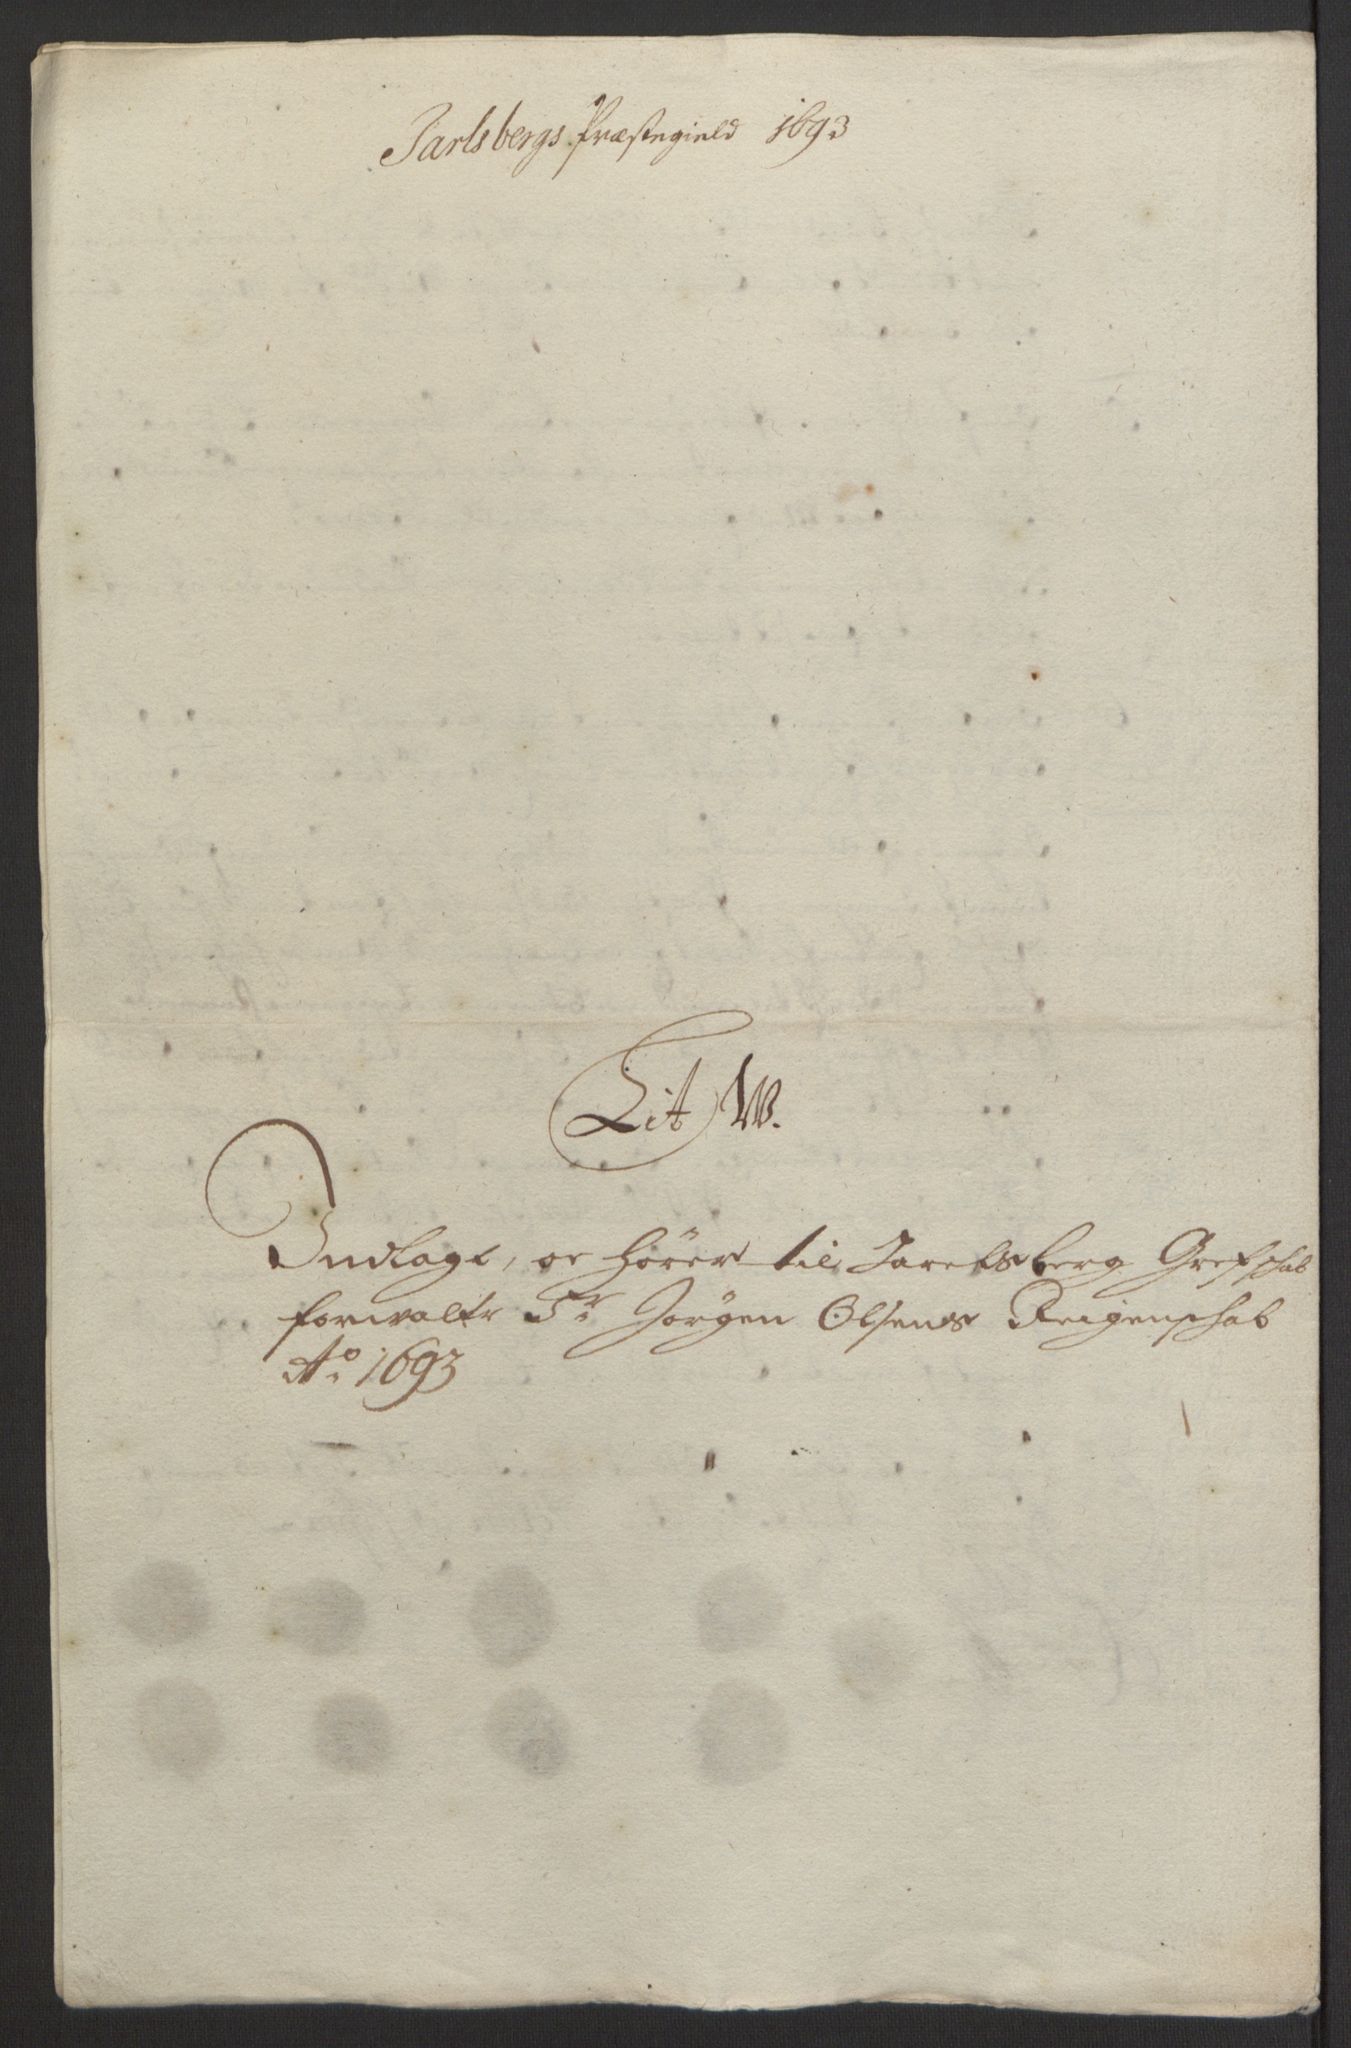 Jarlsbergs Præstegield 1693
Lit W.
Indlagt, oc hörer til Jarelsberg Grefschab
forwaltr Sr Jörgen Olsens Reigenschab
Ao. 1693